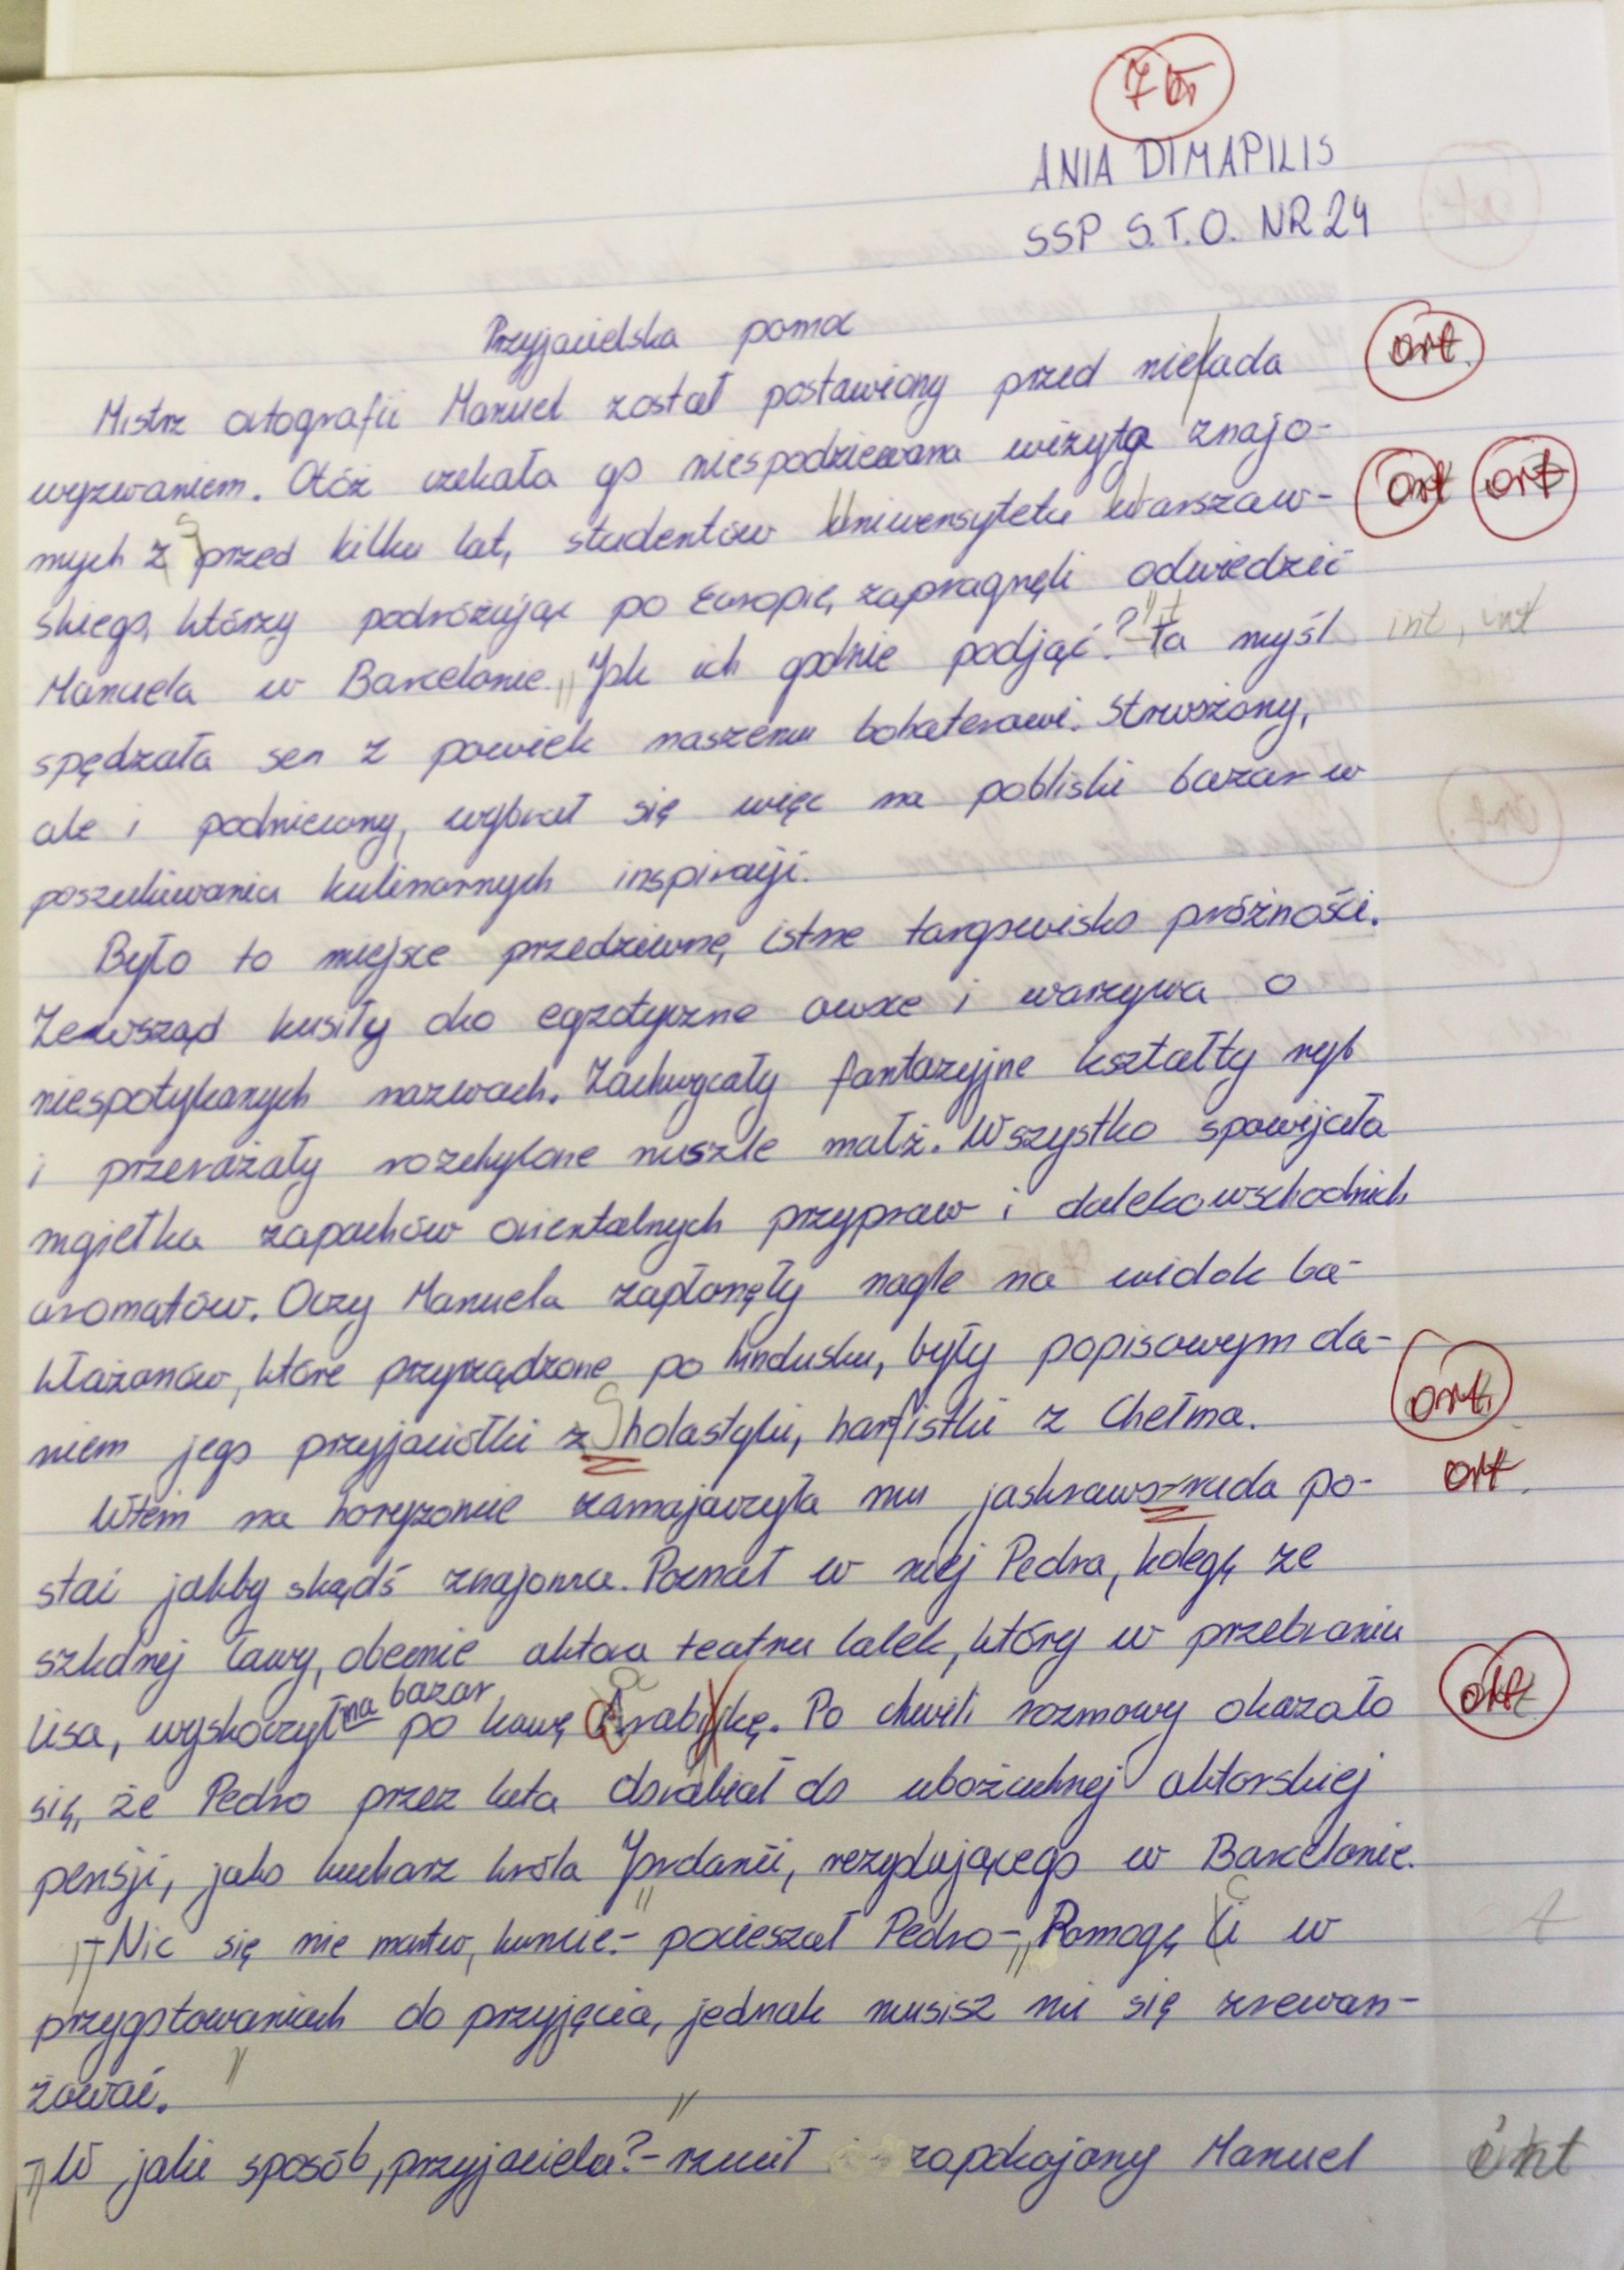 7 ort
ANIA DIMAPILIS
SSP S.T.O. NR 24
Przyjacielska pomoc
Mistrz ortografii Manuel został postawiony przed nielada ort.
wyzwaniem. Otóż czekała go niespodziewana wizyta znajo-
mych z sprzed kilku lat, studentów Uniwersytetu Warszaw- ort ort
skiego, którzy podróżując po Europie, zapragnęli odwiedzić
Manuela w Barcelonie. "Jak ich godnie podjąć?" ta myśl int, int
spędzała sen z powiek naszemu bohaterowi. Strwożony,
ale i podniecony, wybrał się więc na pobliski bazar w
poszukiwaniu kulinarnych inspiracji.
Było to miejsce przedziwne, istne targowisko próżności.
Zewsząd kusiły oko egzotyczne owoce i warzywa o
niespotykanych nazwach. Zachwycały fantazyjne kształty ryb
i przerażały rozchylone muszle małż. Wszystko spowijała
mgiełka zapachów orientalnych przypraw i dalekowschodnich
aromatów. Oczy Manuela zapłonęły nagle na widok ba-
kłażanów, które przyrządzone po hindusku, były popisowym da-
niem jego przyjaciółki Scholastyki, harfistki z Chełma. ort.
Wtem na horyzoncie zamajaczyła mu jaskrawo ruda po- ort.
stać jakby skądś znajoma. Poznał w niej Pedra, kolegę ze
szkolnej ławy, obecnie aktora teatru lalek, który w przebraniu
lisa, wyskoczył na bazar po kawę Arabikę. Po chwili rozmowy okazało ort.
się, że Pedro przez lata dorabiał do ubożuchnej aktorskiej
pensji, jako kucharz króla Jordanii, rezydującego w Barcelonie.
"-Nic się nie martw, kumie.- pocieszał Pedro- "Pomogę Ci w
przygotowaniach do przyjęcia, jednak musisz mi się zrewan-
żować."
"-W jaki sposób, przyjacielu?"- rzucił zaspokojony Manuel int